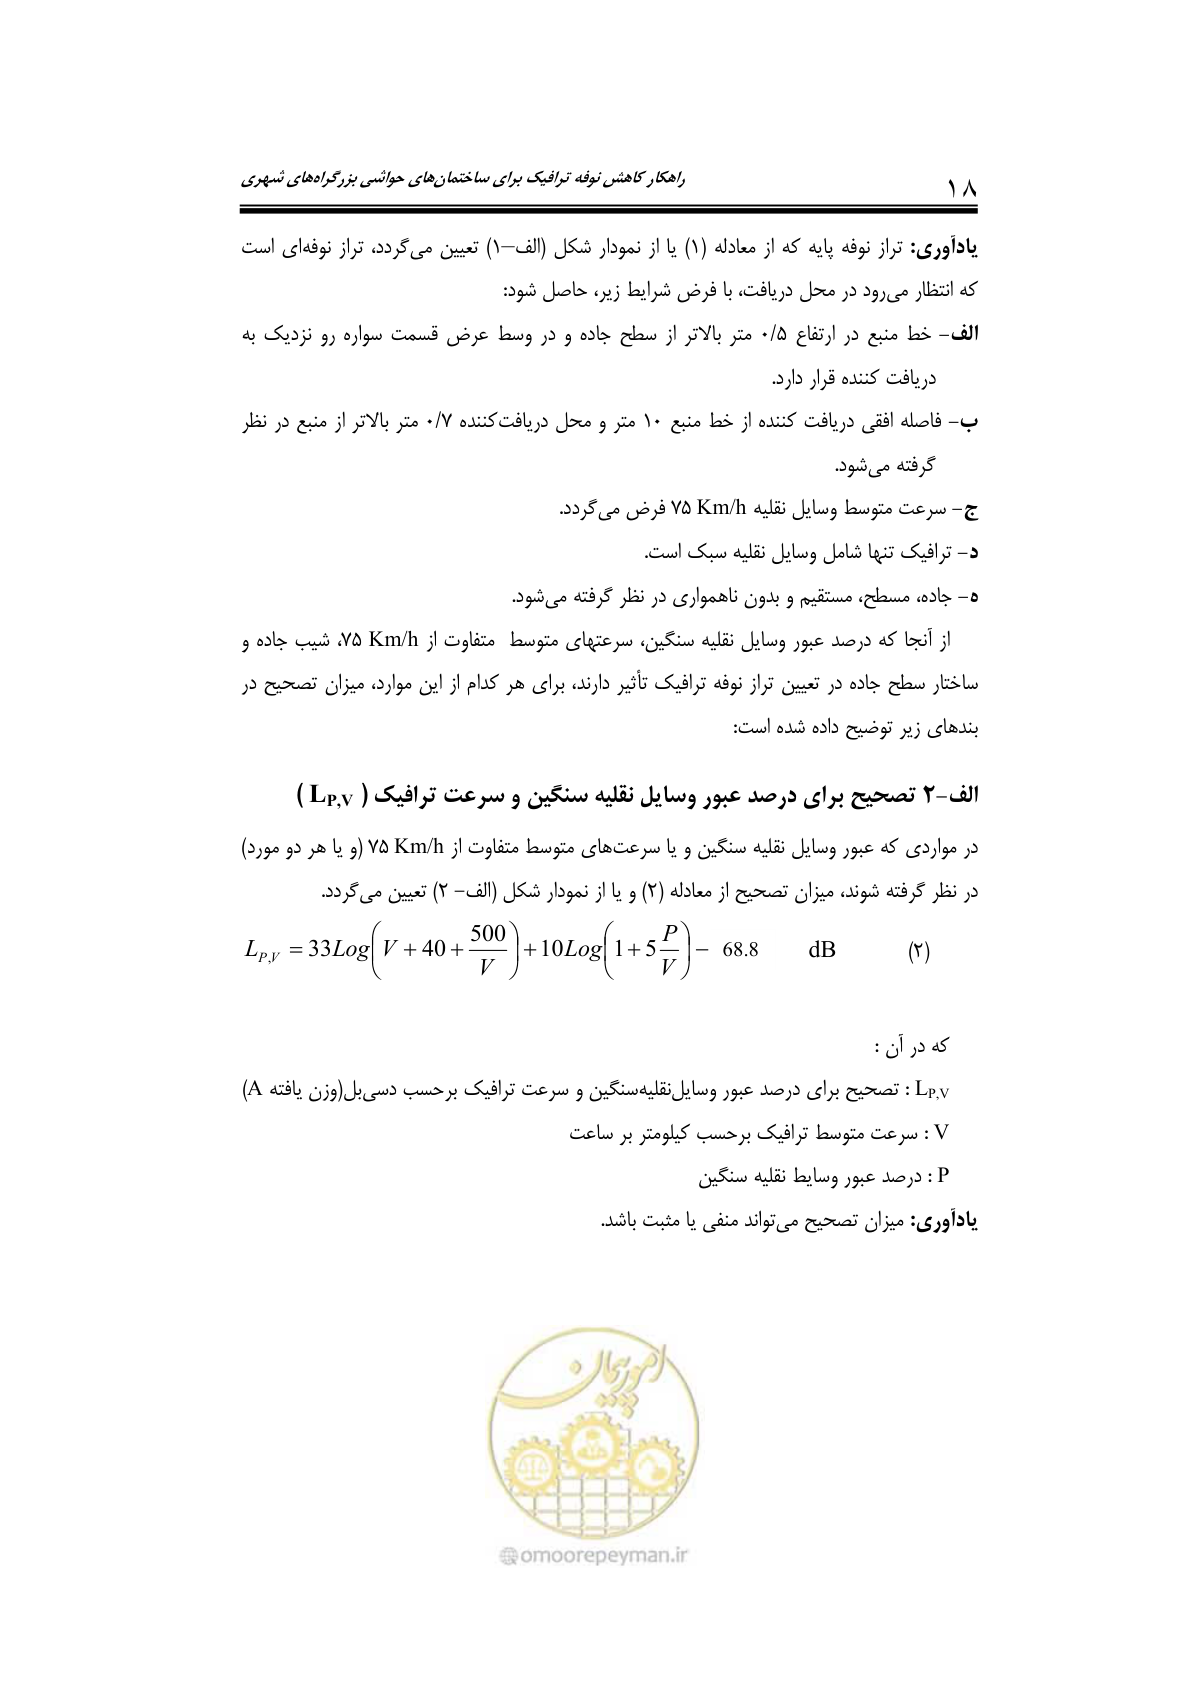 ۱۸ راهکار کاهش نوفه ترافیک برای ساختمان‌های حواشی بزرگراه‌های شهری
یادآوری: تراز نوفه پایه که از معادله (۱) یا از نمودار شکل (الف–۱) تعیین می‌گردد، تراز نوفه‌ای است
که انتظار می‌رود در محل دریافت، با فرض شرایط زیر، حاصل شود:
الف- خط منبع در ارتفاع ۰/۵ متر بالاتر از سطح جاده و در وسط عرض قسمت سواره رو نزدیک به
دریافت کننده قرار دارد.
ب- فاصله افقی دریافت کننده از خط منبع ۱۰ متر و محل دریافت‌کننده ۰/۷ متر بالاتر از منبع در نظر
گرفته می‌شود.
ج- سرعت متوسط وسایل نقلیه ۷۵ Km/h فرض می‌گردد.
د- ترافیک تنها شامل وسایل نقلیه سبک است.
ه- جاده، مسطح، مستقیم و بدون ناهمواری در نظر گرفته می‌شود.
از آنجا که درصد عبور وسایل نقلیه سنگین، سرعتهای متوسط متفاوت از ۷۵ Km/h، شیب جاده و
ساختار سطح جاده در تعیین تراز نوفه ترافیک تأثیر دارند، برای هر کدام از این موارد، میزان تصحیح در
بندهای زیر توضیح داده شده است:
الف-۲ تصحیح برای درصد عبور وسایل نقلیه سنگین و سرعت ترافیک ( LP,V )
در مواردی که عبور وسایل نقلیه سنگین و یا سرعت‌های متوسط متفاوت از ۷۵ Km/h (و یا هر دو مورد)
در نظر گرفته شوند، میزان تصحیح از معادله (۲) و یا از نمودار شکل (الف- ۲) تعیین می‌گردد.
L_{P,V} = 33Log(V + 40 + 500/V) + 10Log(1 + 5 P/V) − 68.8 dB (۲)
که در آن :
LP,V : تصحیح برای درصد عبور وسایل‌نقلیه‌سنگین و سرعت ترافیک برحسب دسی‌بل(وزن یافته A)
V : سرعت متوسط ترافیک برحسب کیلومتر بر ساعت
P : درصد عبور وسایط نقلیه سنگین
یادآوری: میزان تصحیح می‌تواند منفی یا مثبت باشد.
امور پیمان
@omoorepeyman.ir